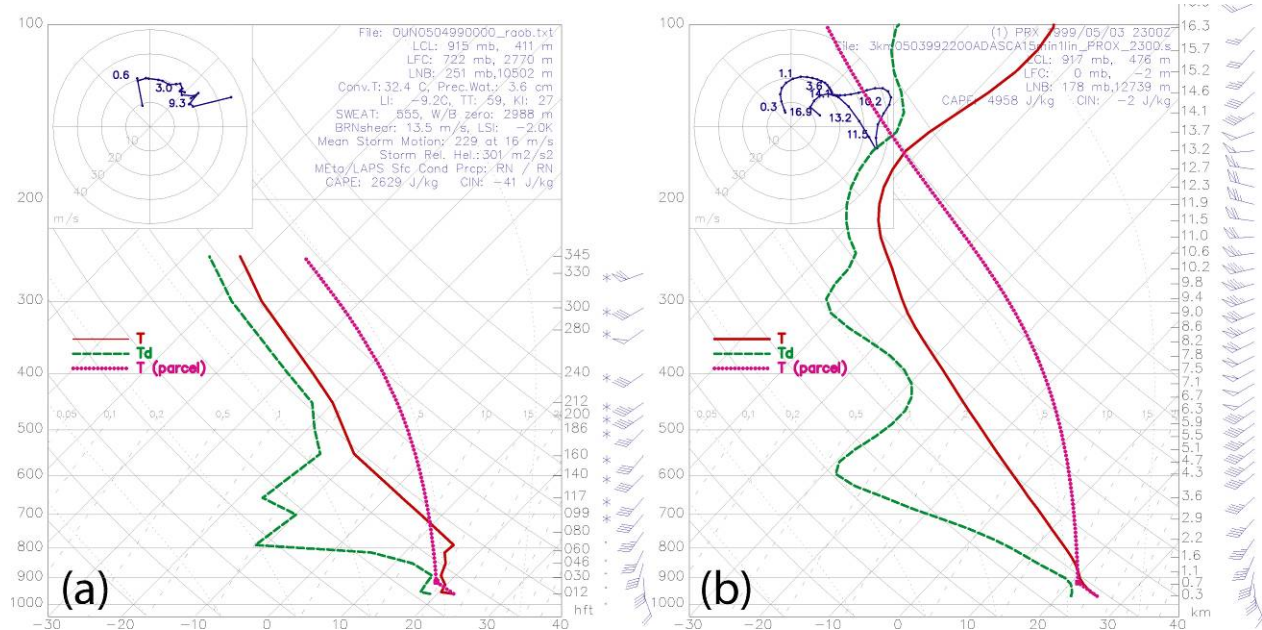 100
200
300
400
500
600
700
800
900
1000
-30
-20
-10
0
10
20
30
40
File: OUN0504990000_raob.txt
LCL: 915 mb, 411 m
LFC: 722 mb, 2770 m
LNB: 251 mb,10502 m
Conv.T: 32.4 C, Prec.Wat.: 3.6 cm
LI: -9.2C, TT: 59, KI: 27
SWEAT: 555, W/B zero: 2988 m
BRNshear: 13.5 m/s, LSI: -2.0K
Mean Storm Motion: 229 at 16 m/s
Storm Rel. Hel.:301 m2/s2
MEta/LAPS Sfc Cond Prcp: RN / RN
CAPE: 2629 J/kg CIN: -41 J/kg
0.6
3.0
9.3
10
20
30
40
m/s
T
Td
T (parcel)
0.05 0.1 0.2 0.5 1 5 10 20
345
330
300
280
240
212
200
186
160
140
117
099
080
060
046
030
012
hft
(a)
100
200
300
400
500
600
700
800
900
1000
-30
-20
-10
0
10
20
30
40
(1) PRX 1999/05/03 2300Z
File: 3km0503992200ADASCA15min1lin_PROX_2300.s
LCL: 917 mb, 476 m
LFC: 0 mb, -2 m
LNB: 178 mb,12739 m
CAPE: 4958 J/kg CIN: -2 J/kg
1.1
3.6
0.3
16.9
10.2
13.2
11.5
10
20
30
40
m/s
T
Td
T (parcel)
0.05 0.1 0.2 0.5 5 10 20
16.3
15.7
15.2
14.6
14.1
13.7
13.2
12.7
12.3
11.9
11.5
11.0
10.6
10.2
9.8
9.4
9.0
8.6
8.2
7.8
7.5
7.1
6.7
6.3
5.9
5.5
5.1
4.7
4.3
3.6
2.9
2.2
1.6
1.1
0.7
0.3
km
(b)